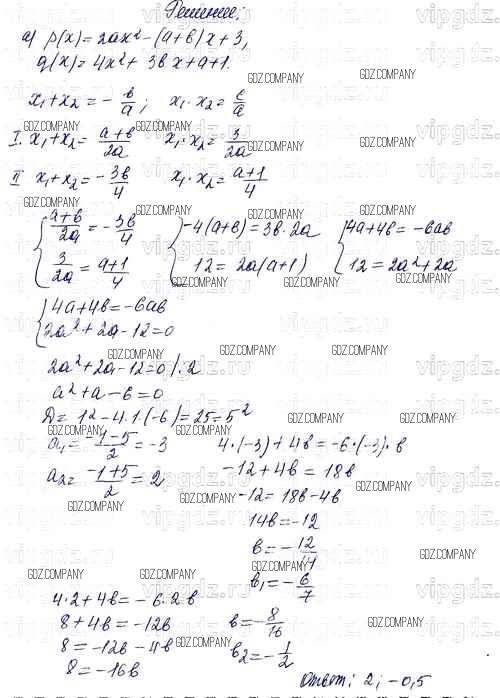 Решение:
а) p(x) = 2ax² - (a+b)x + 3,
q(x) = 4x² + 3bx + a+1.
x₁+x₂ = - b/a ; x₁·x₂ = c/a
I. x₁+x₂ = (a+b)/2a x₁·x₂ = 3/2a
II x₁+x₂ = - 3b/4 x₁·x₂ = (a+1)/4
{ (a+b)/2a = - 3b/4 { -4(a+b) = 3b·2a { 4a+4b = -6ab
3/2a = (a+1)/4 12 = 2a(a+1) 12 = 2a²+2a
{ 4a+4b = -6ab
2a²+2a-12=0
2a²+2a-12=0 /:2
a²+a-6=0
D = 1²-4·1·(-6) = 25 = 5²
a₁ = (-1-5)/2 = -3 4·(-3)+4b = -6·(-3)·b
a₂ = (-1+5)/2 = 2 -12+4b = 18b
-12 = 18b-4b
14b = -12
b = - 12/14
b₁ = - 6/7
4·2+4b = -6·2b
8+4b = -12b
8 = -12b-4b
8 = -16b
b = - 8/16
b₂ = - 1/2
Ответ: 2; -0,5
GDZ.COMPANY
vipgdz.ru